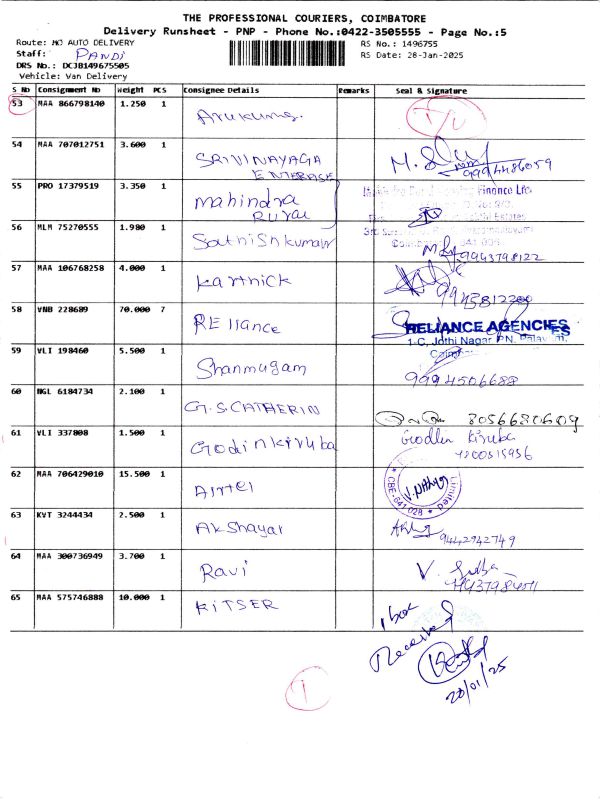 THE PROFESSIONAL COURIERS, COIMBATORE
Delivery Runsheet - PNP - Phone No.:0422-3505555 - Page No.:5
Route: MO AUTO DELIVERY
RS No.: 1496755
Staff: PANDi
RS Date: 28-Jan-2025
DRS No.: DCJB149675505
Vehicle: Van Delivery
S No Consignment No Weight PCS Consignee Details Remarks Seal & Signature
53 MAA 866798140 1.250 1 Arukumg.
54 MAA 707012751 3.600 1 SRIVINAYAGA
ENTERPRISE 9994486059
55 PRO 17379519 3.350 1 mahindra
RURAL Finance Ltd.
56 MLM 75270555 1.980 1 Sathishkumar
9943798122
57 MAA 106768258 4.000 1 karthick
9945812200
58 VNB 228689 70.000 7 REliance RELIANCE AGENCIES
1-C, Jothi Nagar, P.N. Palayam,
59 VLI 198460 5.500 1 Shanmugam
9994506688
60 NGL 6184734 2.100 1 G.S.CATHERIN
8056680609
61 VLI 337808 1.500 1 Godinkiruba Godlin Kiruba
4200515956
62 MAA 706429010 15.500 1 Airtel Limited
* CBE-641 028 *
63 KVT 3244434 2.500 1 Akshayar
9442942749
64 MAA 300736949 3.700 1 Ravi V.
65 MAA 575746888 10.000 1 KITSER 1 box
Received
28/01/25
1